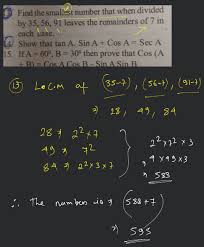 Find the smallest number that when divided
by 35, 56, 91 leaves the remainders of 7 in
each case.
Show that tan A. Sin A + Cos A = Sec A
15. If A = 60°, B = 30° then prove that Cos (A
+ B) = Cos A Cos B - Sin A Sin B
13 L.C.M of (35-7), (56-7), (91-7)
⇒ 28, 49, 84
28 → 2² × 7
49 → 7²
84 → 2² × 3 × 7
2² × 7² × 3
4 × 49 × 3
⇒ 588
∴ The number is ⇒ (588+7)
⇒ 595